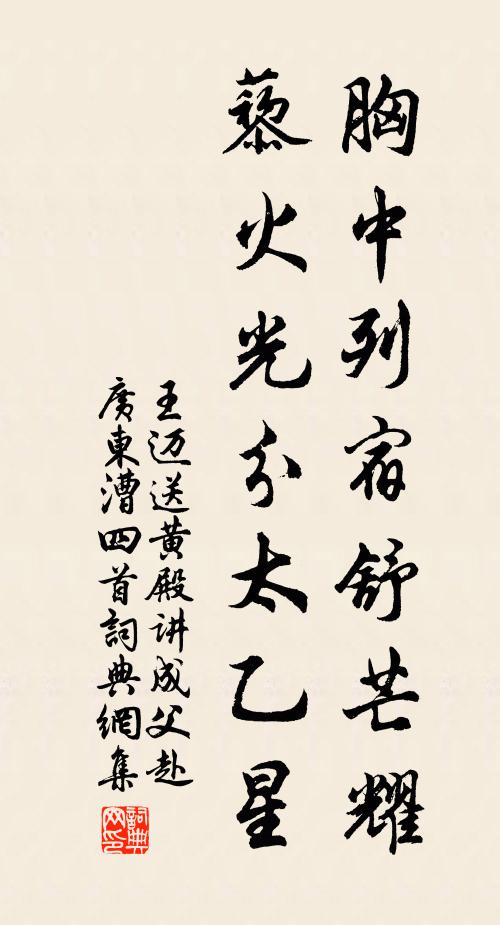 胸中列宿舒芒耀
藜火光分太乙星
王迈送黄殿讲成父赴
廣東漕四首詞典網集
詞典
网印